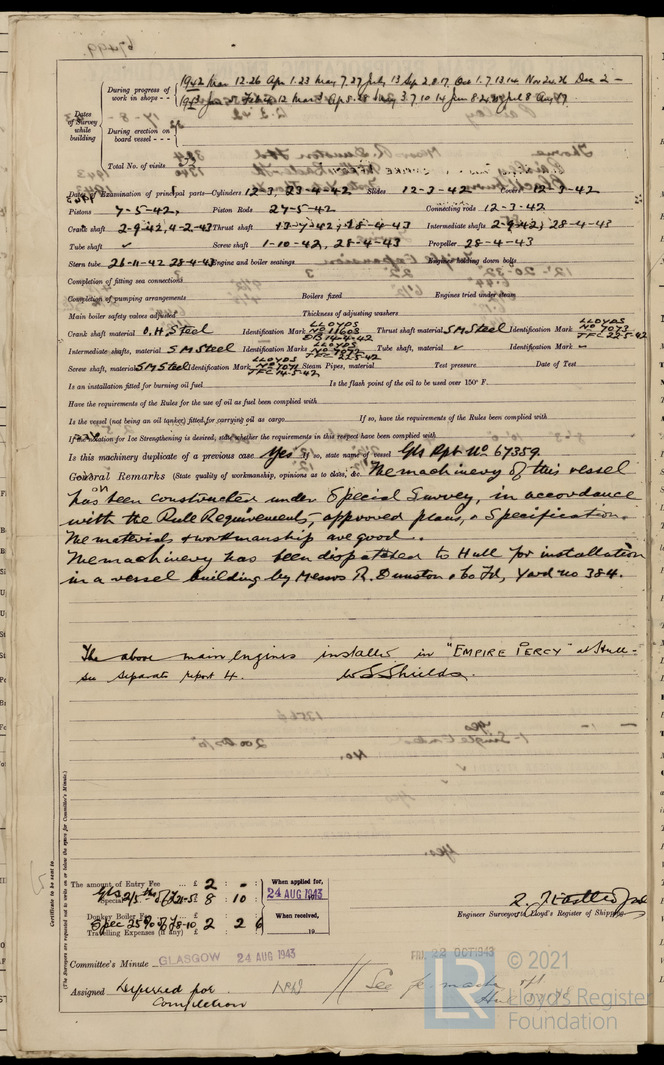 Dates of Survey while building
During progress of work in shops - - 1942 Mar 12.26 Apr 1.23 May 7.27 July 13 Sep 2.8.17 Oct 1.7.13.14 Nov 24.26 Dec 2 -
During erection on board vessel - - -
Total No. of visits
Dates of Examination of principal parts—Cylinders 12-3, 23-4-42 Slides 12-3-42 Covers 12-3-42
Pistons 7-5-42, Piston Rods 27-5-42 Connecting rods 12-3-42
Crank shaft 2-9-42, 4-2-43 Thrust shaft 13-7-42, 28-4-43 Intermediate shafts 2-9-42, 28-4-43
Tube shaft ✓ Screw shaft 1-10-42, 28-4-43 Propeller 28-4-43
Stern tube 26-11-42 28-4-43 Engine and boiler seatings Engines holding down bolts
Completion of fitting sea connections
Completion of pumping arrangements Boilers fixed Engines tried under steam
Main boiler safety valves adjusted Thickness of adjusting washers
Crank shaft material O.H. Steel Identification Mark LLOYDS No 11603 14-4-42 Thrust shaft material S M Steel Identification Mark LLOYDS No 7073 TFC 22-5-42
Intermediate shafts, material S M Steel Identification Marks LLOYDS TFC 22-5-42 Tube shaft, material ✓ Identification Mark
Screw shaft, material S M Steel Identification Mark LLOYDS No 7071 TFC 14-5-42 Steam Pipes, material Test pressure Date of Test
Is an installation fitted for burning oil fuel Is the flash point of the oil to be used over 150° F.
Have the requirements of the Rules for the use of oil as fuel been complied with
Is the vessel (not being an oil tanker) fitted for carrying oil as cargo If so, have the requirements of the Rules been complied with
If the notation for Ice Strengthening is desired, state whether the requirements in this respect have been complied with
Is this machinery duplicate of a previous case Yes If so, state name of vessel Gls Rpt No 67359.
General Remarks (State quality of workmanship, opinions as to class, &c. The machinery of this vessel
has been constructed under Special Survey, in accordance
with the Rule Requirements, approved plans, & Specification.
The materials & workmanship are good.
The machinery has been dispatched to Hull for installation
in a vessel building by Messrs R. Dunston & Co Ltd, Yard no 384.
The above main engines installed in "EMPIRE PERCY" at Hull -
see separate report 4. W S Shields.
Certificate to be sent to
(The Surveyors are requested not to write on or below the space for Committee's Minute.)
The amount of Entry Fee ... £ 2 : - : When applied for,
Special 8 : 10 : 24 AUG 1943
Donkey Boiler Fee When received,
Travelling Expenses (if any) £ 2 : 2 6 19
Engineer Surveyor to Lloyd's Register of Shipping
Committee's Minute GLASGOW 24 AUG 1943 FRI. 22 OCT 1943
Assigned Deferred for
completion
© 2021
LR Lloyd's Register
Foundation